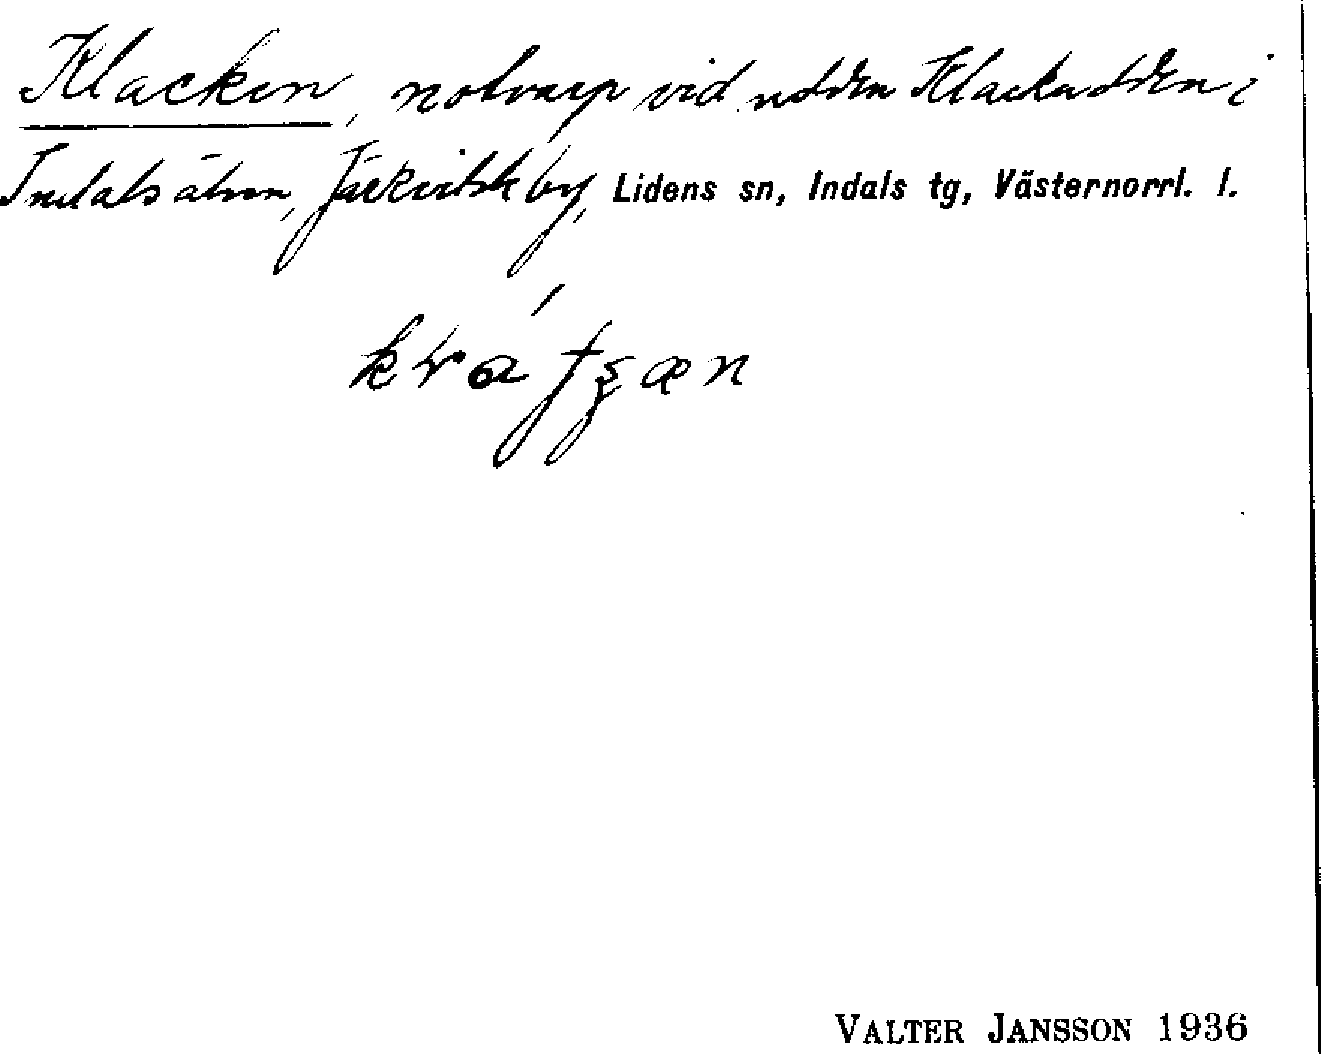 Klacken, notvarp vid udden Klackudden i
Indalsälven, Järkvitsle by, Lidens sn, Indals tg, Västernorrl. l.
VALTER JANSSON 1936